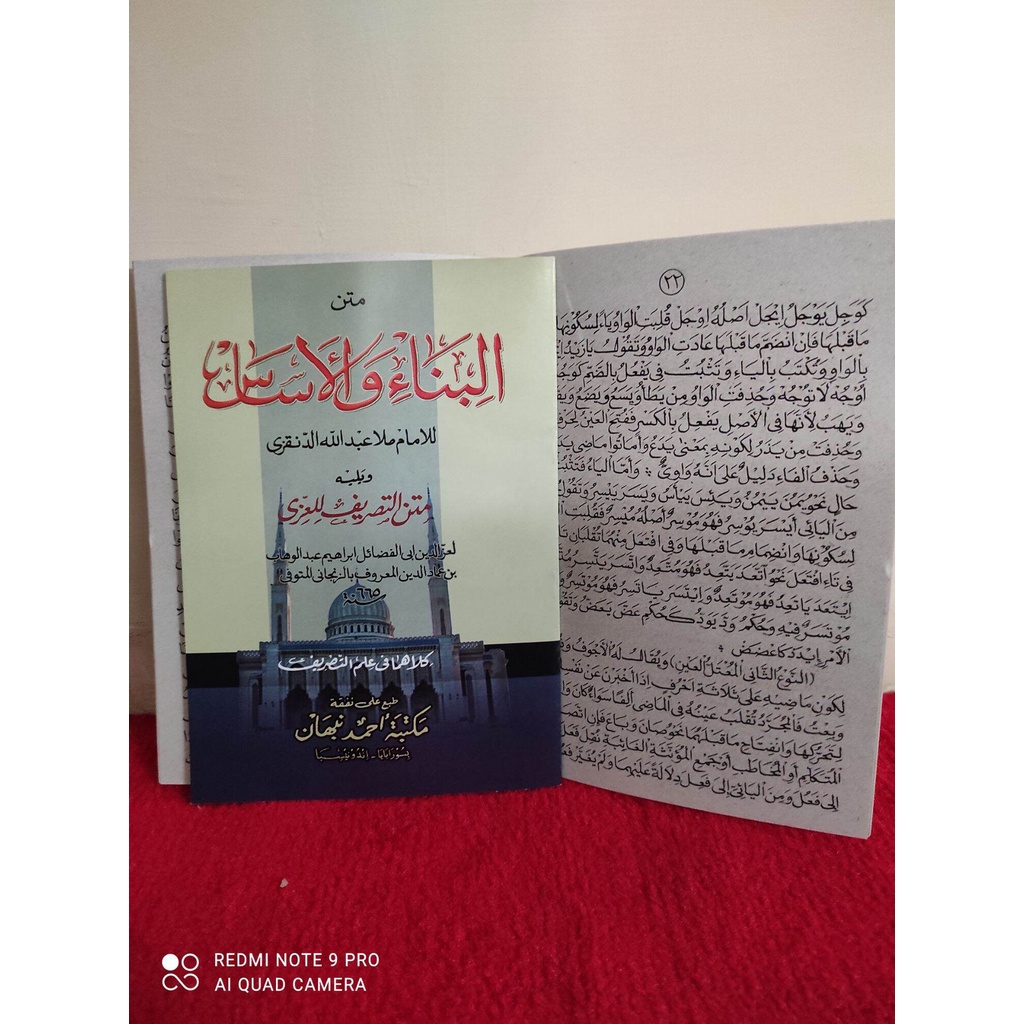 متن
البناء والأساس
للامام ملا عبد الله الدنقزى
ويليه
متن التصريف للعزى
لعز الدين ابى الفضائل ابراهيم عبد الوهاب
بن عماد الدين المعروف بالزنجانى المتوفى
سنة ٦٦٥
كلاهما فى علم التصريف
طبع على نفقة
مكتبة احمد نبهان
سورابايا - اندونيسيا
٢٢
كَوَجِلَ يَوْجَلُ اِيْجَلْ اَصْلُهُ اِوْجَلْ قُلِبَتِ الْوَاوُ يَاءً لِسُكُونِهَا
مَا قَبْلَهَا فَاِنِ انْضَمَّ مَا قَبْلَهَا عَادَتِ الْوَاوُ وَتَقُولُ يَا زَيْدُ
بِالْوَاوِ وَتُكْتَبُ بِالْيَاءِ وَتَثْبُتُ فِى يَفْعُلُ بِالضَّمِّ كَوَجُهَ
اُوْجُهْ لَا تَوْجُهْ وَحُذِفَتِ الْوَاوُ مِنْ يَطَأُ وَيَسَعُ وَيَضَعُ
وَيَهَبُ لِاَنَّهَا فِى الْاَصْلِ يَفْعِلُ بِالْكَسْرِ فَفُتِحَ الْعَيْنُ لِحَرْفِ
وَحُذِفَتْ مِنْ يَذَرُ لِكَوْنِهِ بِمَعْنَى يَدَعُ وَاَمَاتُوا مَاضِىَ
وَحَذْفُ الْفَاءِ دَلِيْلٌ عَلَى اَنَّهُ وَاوِىٌّ * وَاَمَّا الْيَاءُ فَتَثْبُتُ
حَالٍ نَحْوُ يَمُنَ يَيْمُنُ وَيَئِسَ يَيْأَسُ وَيَسَرَ يَيْسِرُ وَتَقُولُ
مِنَ الْيَائِى اَيْسَرَ يُوْسِرُ فَهُوَ مُوْسِرٌ اَصْلُهُ مُيْسِرٌ فَقُلِبَتِ
لِسُكُونِهَا وَانْضِمَامِ مَا قَبْلَهَا وَفِى افْتَعَلَ مِنْهُمَا تُقْلَبَانِ
فِى تَاءِ افْتَعَلَ نَحْوُ اتَّعَدَ يَتَّعِدُ فَهُوَ مُتَّعِدٌ وَاتَّسَرَ يَتَّسِرُ
اِيْتَعَدَ يَاتَعِدُ فَهُوَ مُوْتَعِدٌ وَاِيْتَسَرَ يَاتَسِرُ فَهُوَ مُوْتَسِرٌ
مُوْتَسَرٌ فِيْهِ وَحُكْمُ وَدَّ يَوَدُّ كَحُكْمِ عَضَّ يَعَضُّ وَتَقُولُ
الْاَمْرِ اِيْدَدْ كَاعْضَضْ *
(اَلنَّوْعُ الثَّانِى الْمُعْتَلُّ الْعَيْنِ) وَيُقَالُ لَهُ الْاَجْوَفُ
لِكَوْنِ مَاضِيْهِ عَلَى ثَلَاثَةِ اَحْرُفٍ اِذَا اَخْبَرْتَ عَنْ
وَبِعْتُ فَالْمُجَرَّدُ تُقْلَبُ عَيْنُهُ فِى الْمَاضِى اَلِفًا سَوَاءٌ كَانَ
لِتَحَرُّكِهَا وَانْفِتَاحِ مَا قَبْلَهَا نَحْوُ صَانَ وَبَاعَ فَاِنِ
الْمُتَكَلِّمِ اَوِ الْمُخَاطَبِ اَوْ جَمْعِ الْمُؤَنَّثَةِ الْغَائِبَةِ نُقِلَ
اِلَى فَعُلَ وَمِنَ الْيَائِىِّ اِلَى فَعِلَ دِلَالَةً عَلَيْهِمَا وَلَمْ يُغَيَّرْ
REDMI NOTE 9 PRO
AI QUAD CAMERA